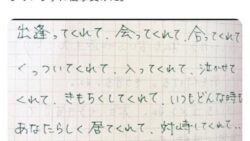 出逢ってくれて、会ってくれて、合ってくれて
くっついてくれて、入ってくれて、泣かせて
くれて、きもちくしてくれて、いつもどんな時も
あなたらしく居てくれて、対峙してくれて、